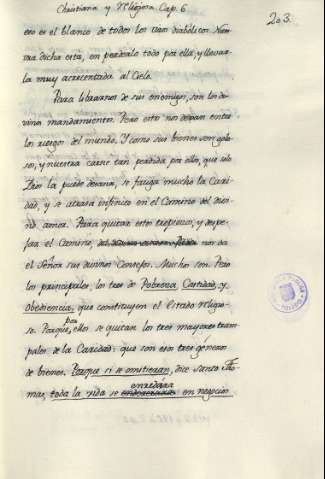 Christiana y Religiosa Cap. 6
203.
eso es el blanco de todos los tiros diabólicos. Nues
tra dicha está, en perderlo todo por ella, y llevar
la muy acrecentada al Cielo.
Para librarnos de sus enemigos, son los di
vinos mandamientos. Pero estos nos dexan entre
los riesgos del mundo. Y como sus bienes son golo
sos, y nuestra carne tan perdida por ellos, que solo
Dios la puede desasir, se fatiga mucho la Cari
dad, y se atrasa infinito en el Camino del divi
no amor. Para quitar estos tropiezos, y despe
jar el Camino, nos da
el Señor sus divinos Consejos. Muchos son. Pero
los principales, los tres de Pobreza, Castidad, y
Obediencia, que constituyen el Estado Religio
so. Porque por ellos se quitan los tres mayores tram
pales de la Caridad: que son esos tres géneros
de bienes. Porque si se omitieran, dice Santo Tho
mas, toda la vida se enredara en negocios